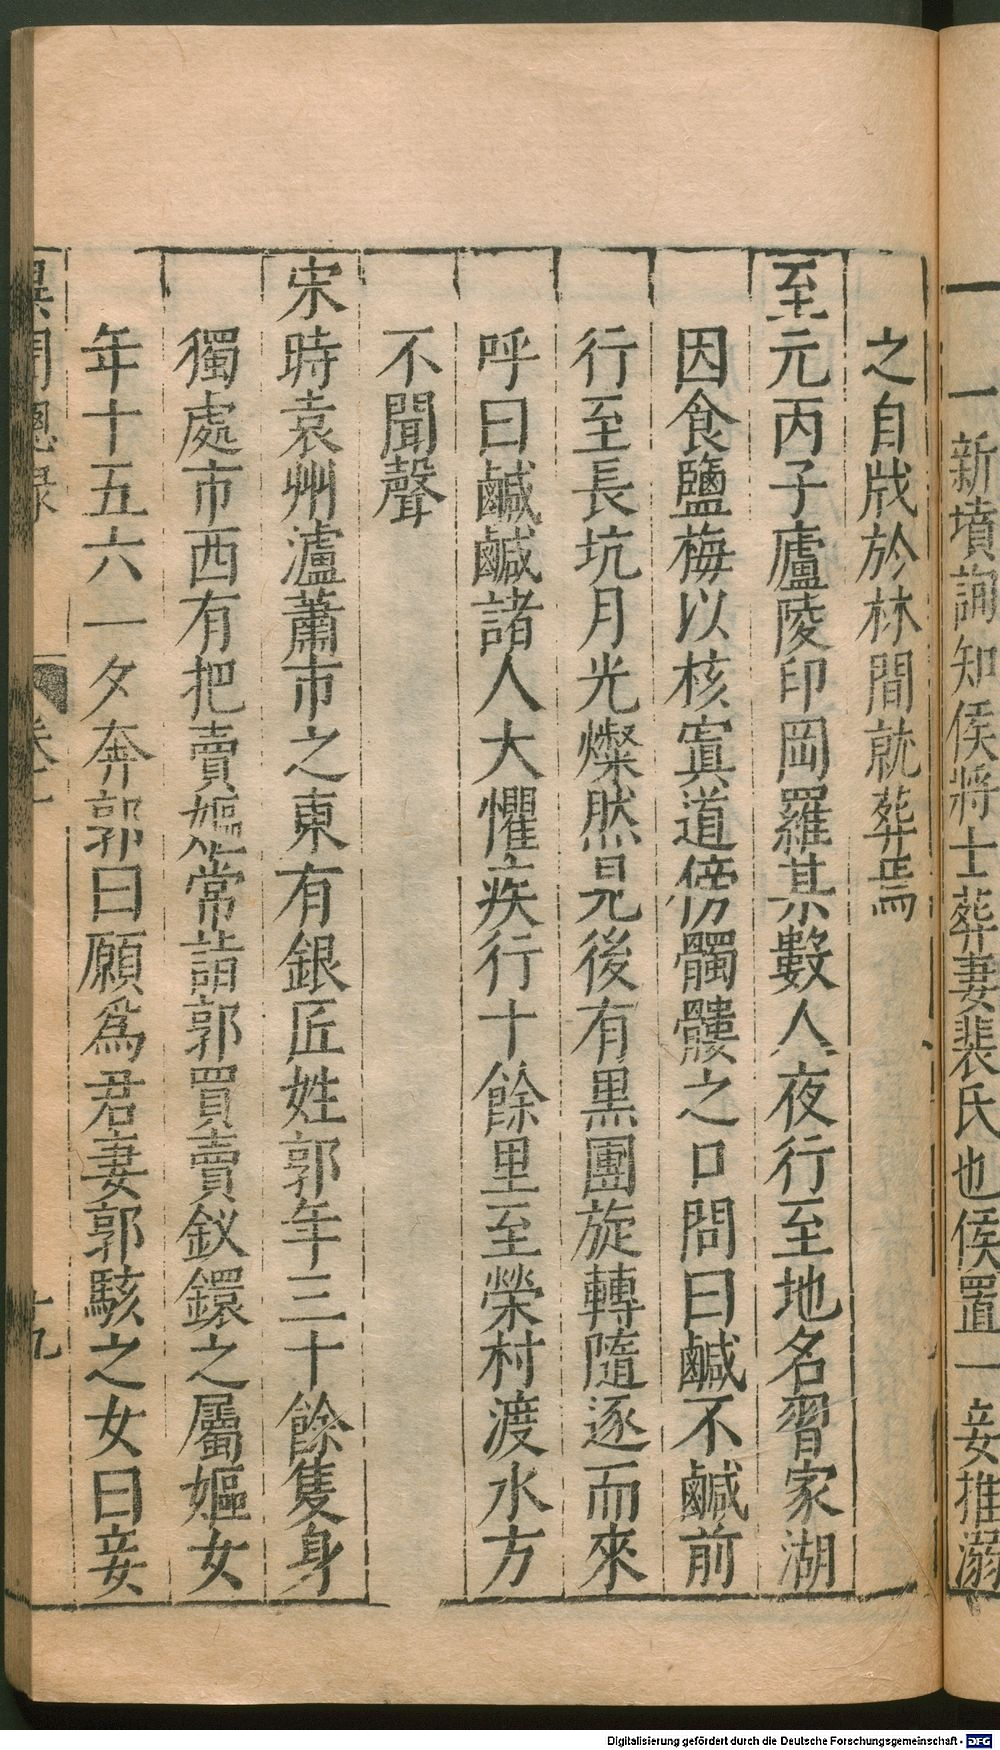 一新墳詢知侯將士葬妻裴氏也侯置一妾推溺
之自戕於林間就葬焉
至元丙子廬陵印岡羅某數人夜行至地名習家湖
因食鹽梅以核寘道傍髑髏之口問曰鹹不鹹前
行至長坑月光燦然見後有黑團旋轉隨逐而來
呼曰鹹鹹諸人大懼疾行十餘里至榮村渡水方
不聞聲
宋時袁州瀘蕭市之東有銀匠姓郭年三十餘隻身
獨處市西有把賣嫗常詣郭買賣釵鐶之屬嫗女
年十五六一夕奔郭曰願爲君妻郭駭之女曰妾
異聞總錄 卷一 十九
Digitalisierung gefördert durch die Deutsche Forschungsgemeinschaft - DFG